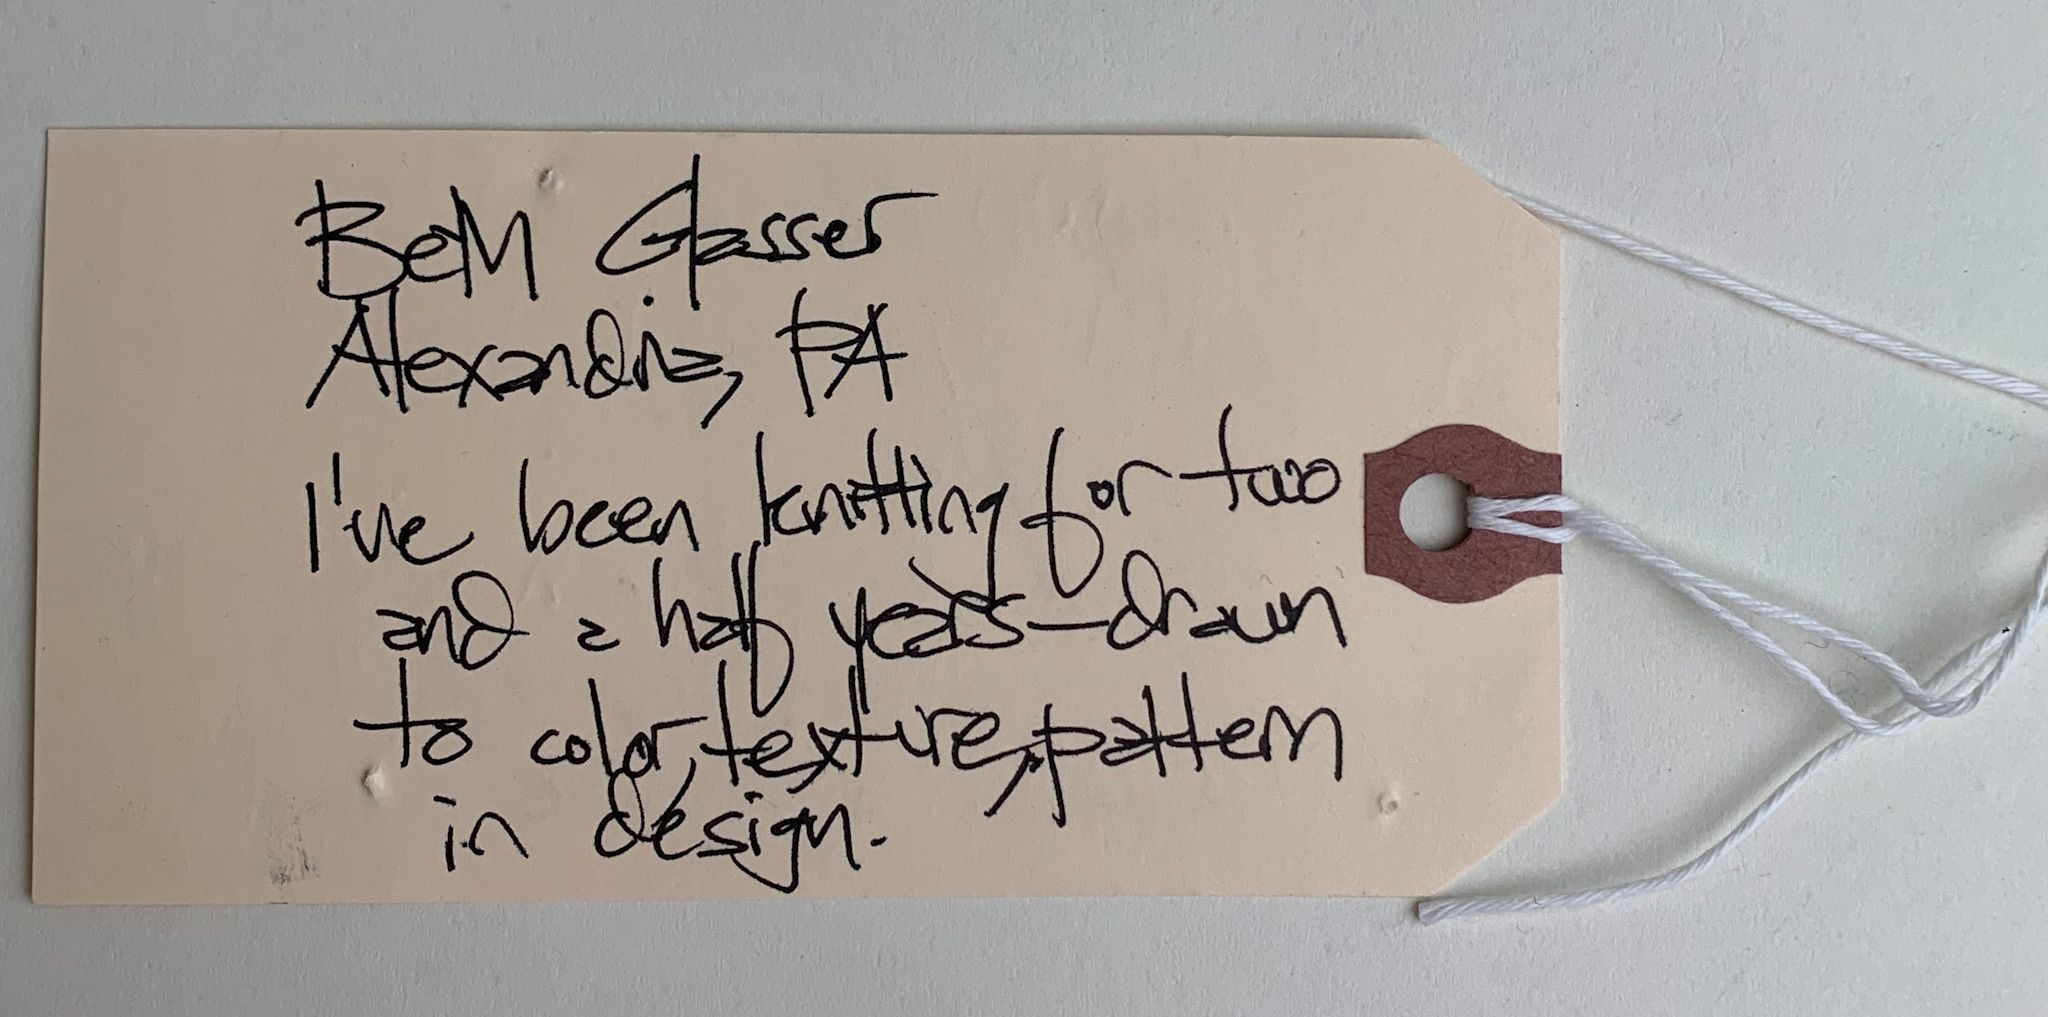 Beth Glasser
Alexandria, PA
I've been knitting for two
and a half years—drawn
to color, texture, pattern
in design.